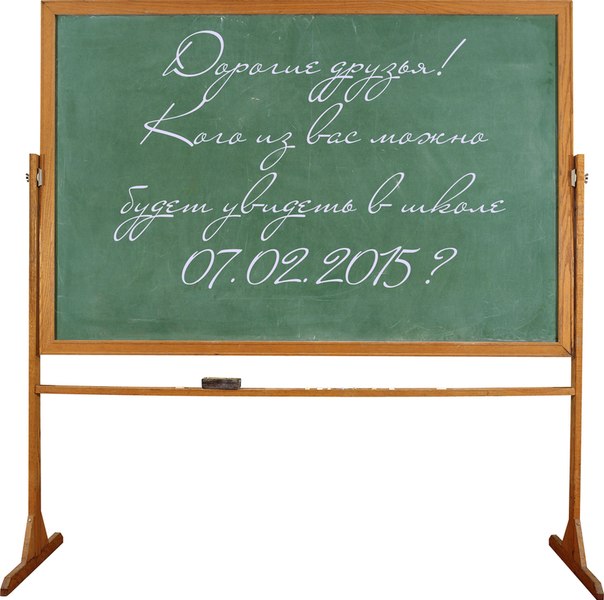 Дорогие друзья!
Кого из вас можно
будет увидеть в школе
07.02.2015?